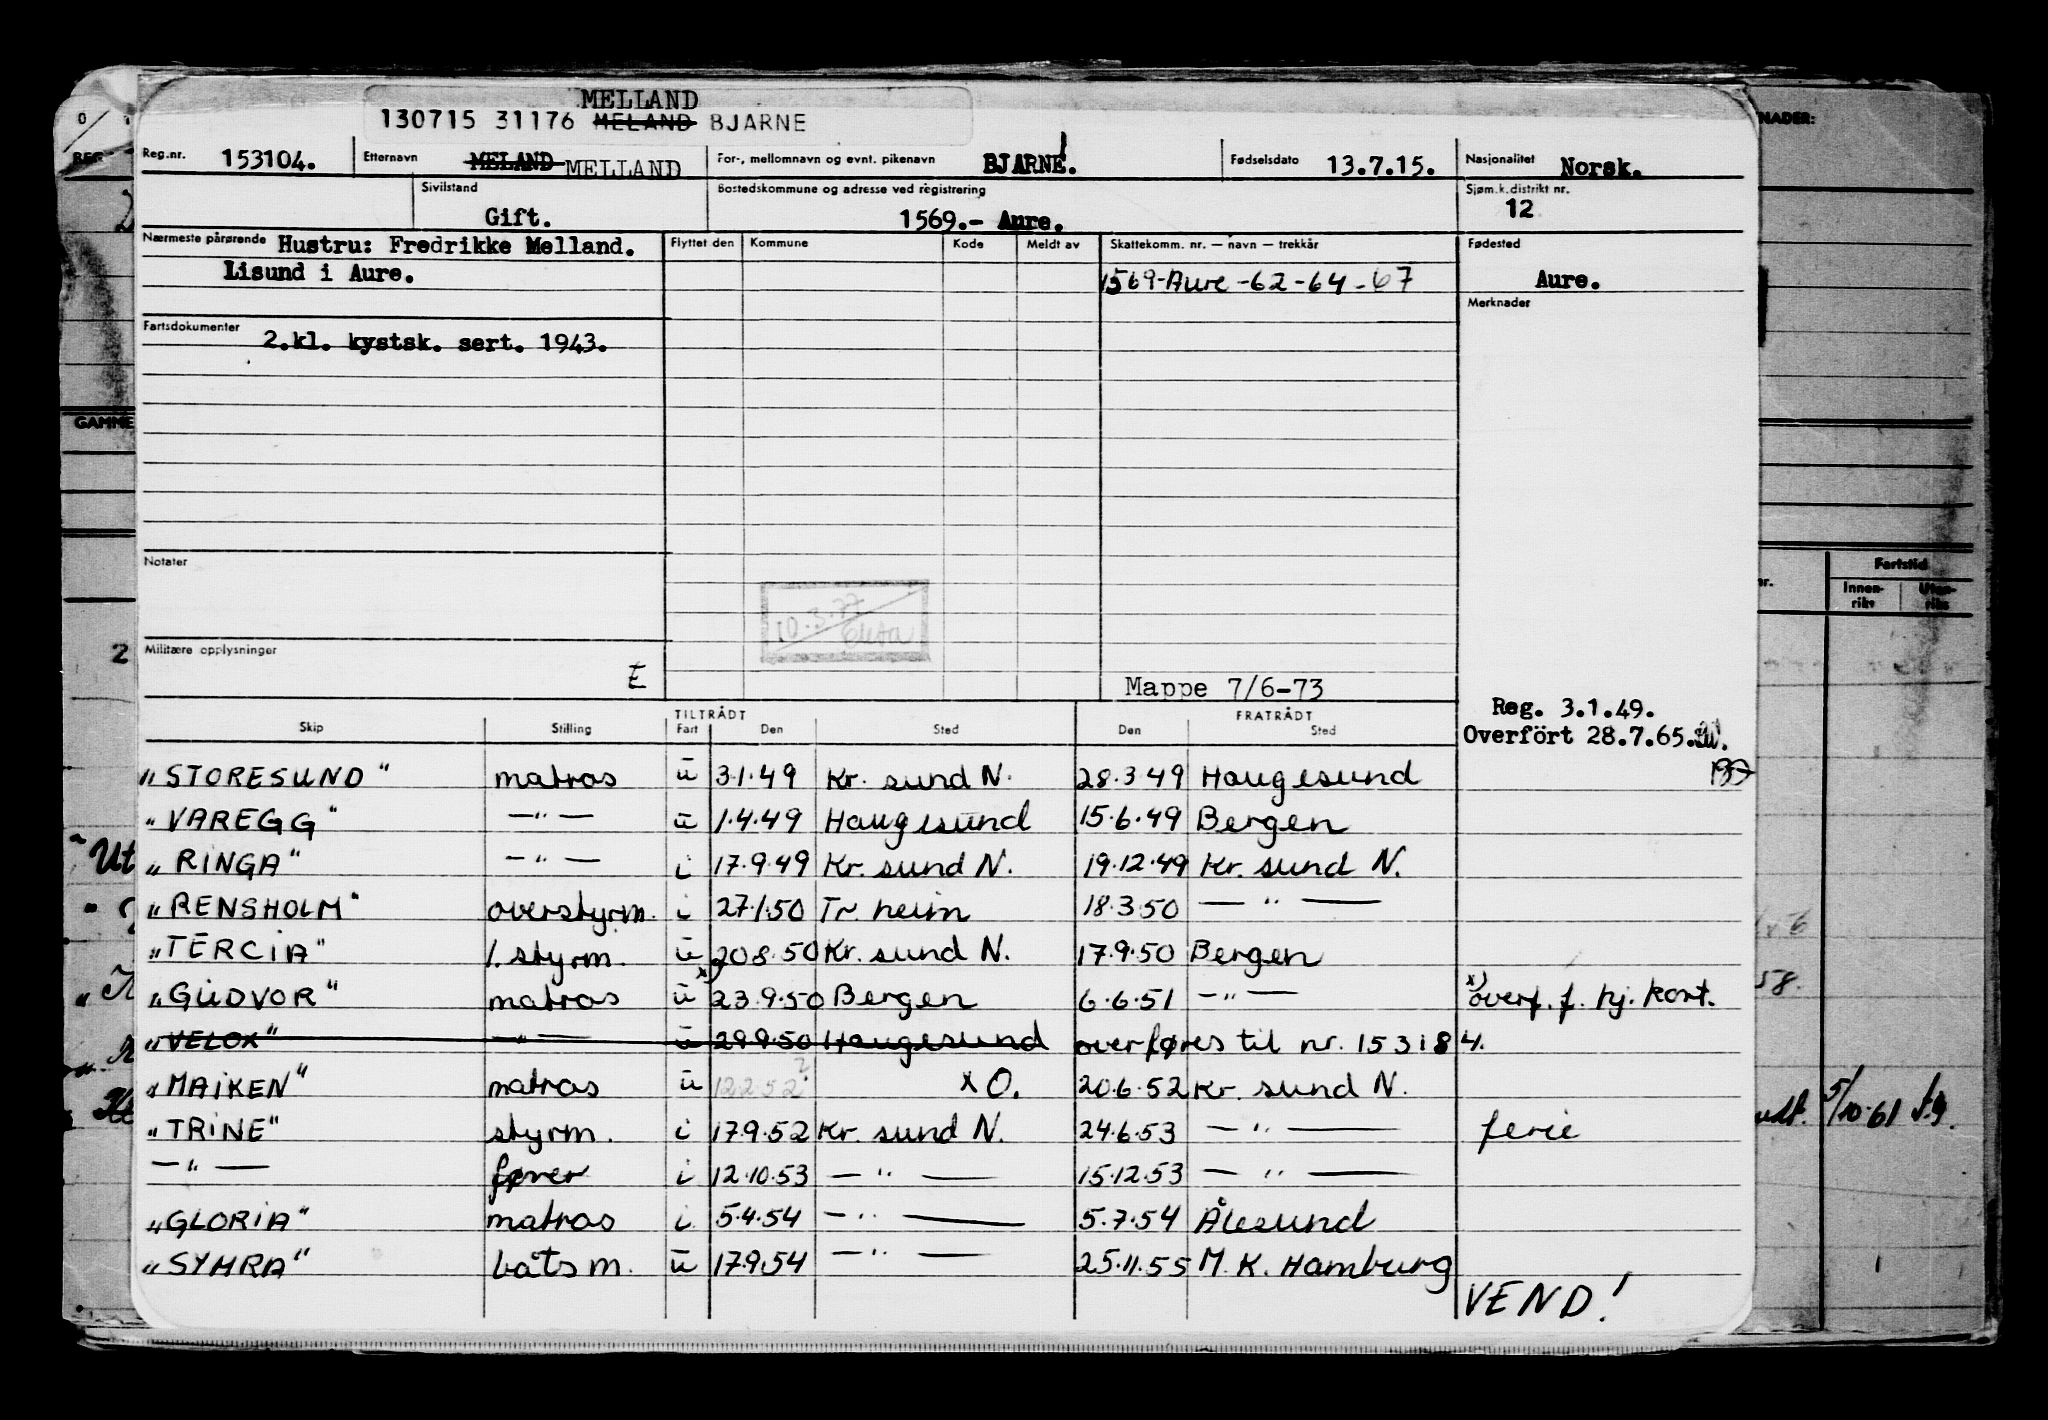 MELLAND
130715 31176 MELAND BJARNE
Reg.nr. 153104. Etternavn MELAND MELLAND For-, mellomnavn og evnt. pikenavn BJARNE. Fødselsdato 13.7.15. Nasjonalitet Norsk.
Sivilstand Gift. Bostedskommune og adresse ved registrering 1569.- Aure. Sjøm.k.distrikt nr. 12
Nærmeste pårørende Hustru: Fredrikke Melland. Flyttet den Kommune Kode Meldt av Skattekomm. nr. — navn — trekkår Fødested
Lisund i Aure. 1569-Aure-62-64-67 Aure.
Merknader
Fartsdokumenter 2.kl. kystsk. sert. 1943.
Notater
10.3.77
Militære opplysninger
E
Mappe 7/6-73
Reg. 3.1.49.
Overført 28.7.65.
TILTRÅDT FRATRÅDT
Skip Stilling Fart Den Sted Den Sted
"STORESUND" matros ū 3.1.49 Kr. sund N. 28.3.49 Haugesund
"VAREGG" —"— ū 1.4.49 Haugesund 15.6.49 Bergen
"RINGA" —"— i 17.9.49 Kr. sund N. 19.12.49 Kr. sund N.
"RENSHOLM" overstyrm. i 27.1.50 Tr. heim 18.3.50 —"—
"TERCIA" 1. styrm. ū 20.8.50 Kr. sund N. 17.9.50 Bergen
"GUDVOR" matros ū x) 23.9.50 Bergen 6.6.51 —"— x) overf. f. hj. kort.
"VELOX" —"— ū 29.9.50 Haugesund overføres til nr. 153184.
"MAIKEN" matros ū 12.2.52 ? x O. 20.6.52 Kr. sund N.
"TRINE" styrm. i 17.9.52 Kr. sund N. 24.6.53 —"— ferie
—"— fører i 12.10.53 —"— 15.12.53 —"—
"GLORIA" matros i 5.4.54 —"— 5.7.54 Ålesund
"SYMRA" båtsm. ū 17.9.54 —"— 25.11.55 M.K. Hamburg
VEND!
NADER:
GAMME
Fartstid
Innen-riks Uten-riks
2
Ut
58.
5/10-61